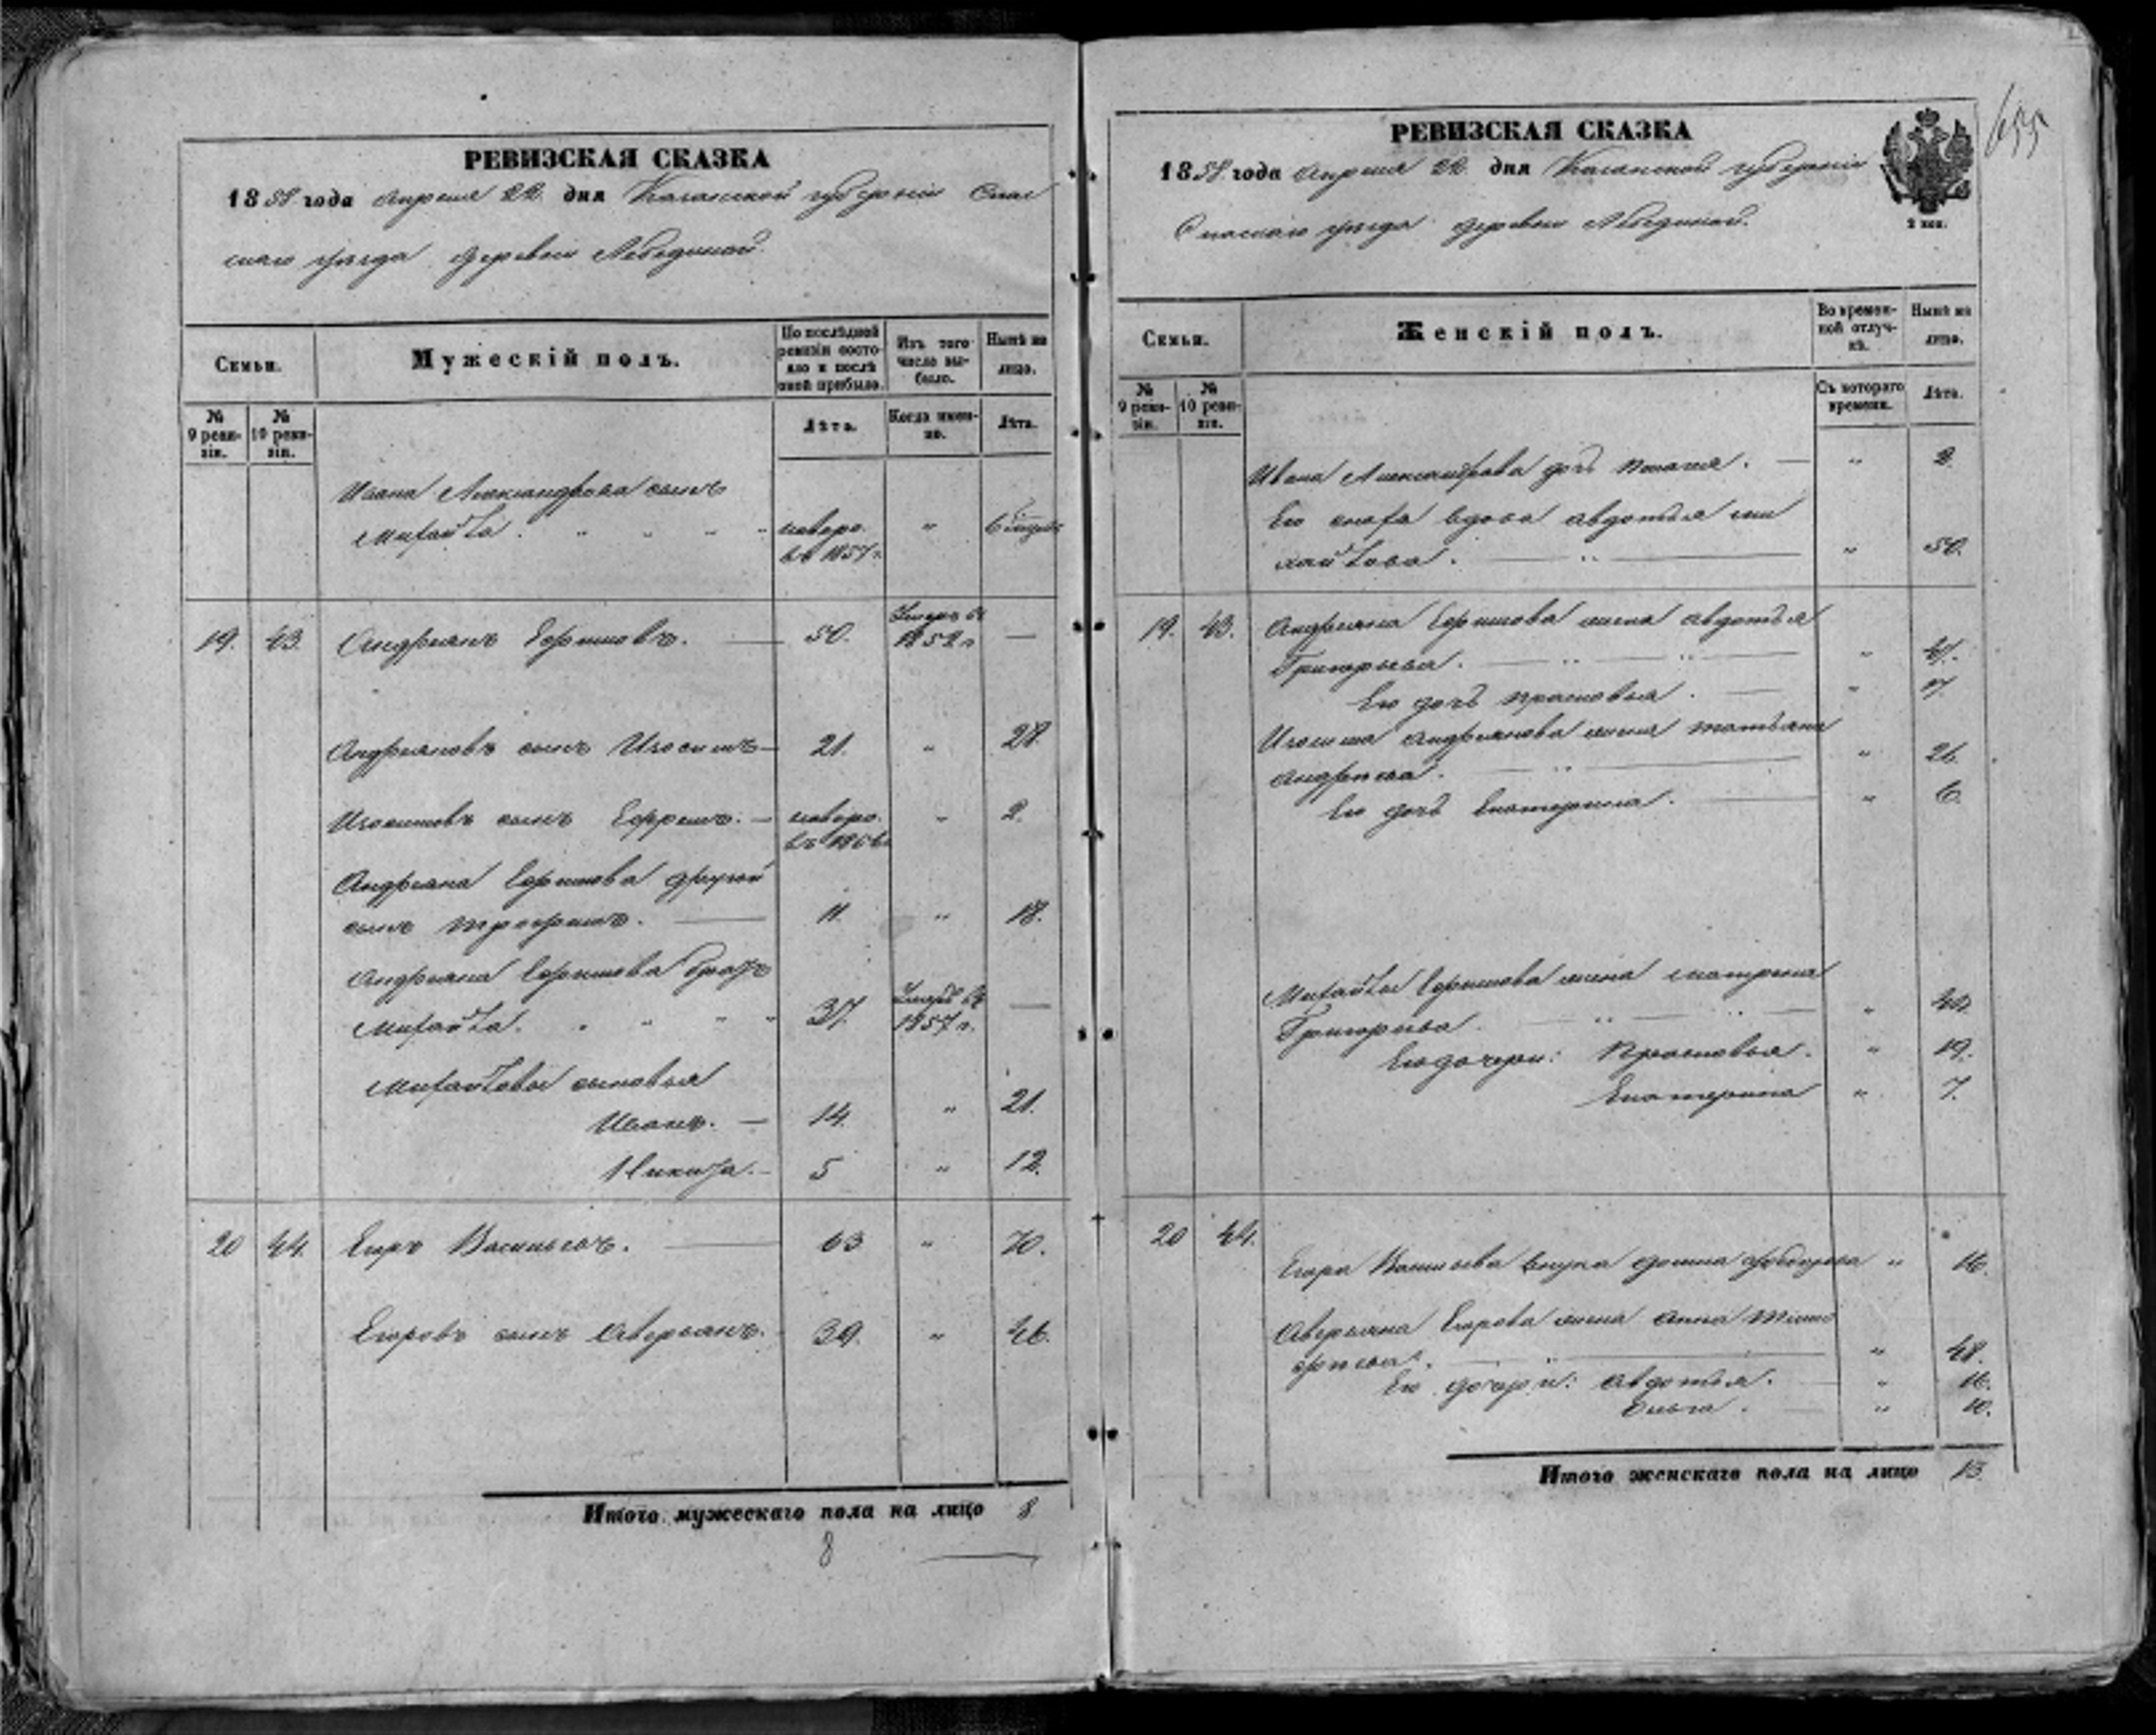 РЕВИЗСКАЯ СКАЗКА
1858 года Апреля 22 дня Казанской губернии Спас
скаго уѣзда деревни Лебединой.
Семьи.
Мужескій полъ.
По послѣдней ревизіи состояло и послѣ оной прибыло.
Изъ того числа выбыло.
Нынѣ на лицо.
№ 9 ревизіи.
№ 10 ревизіи.
Лѣта.
Когда именно.
Лѣта.
Ивана Александрова сынъ
Михайла. новоро. " 6
въ 1857 г.
19. 43. Андреянъ Ефимовъ. — 50. Умеръ въ 1852 г —
Андреяновъ сынъ Изосимъ — 21. " 28.
Изосимовъ сынъ Ефремъ. — новоро. " 2.
въ 1856
Андреяна Ефимова другой
сынъ Трофимъ. — 11. " 18.
Андреяна Ефимова братъ
Михайла. 37. Умеръ въ 1857 г. —
Михайловы сыновья
Иванъ. — 14. " 21.
Никита. — 5 " 12.
20 44. Егоръ Васильевъ. — 63 " 70.
Егоровъ сынъ Аверьянъ. 39. " 46.
Итого мужескаго пола на лицо 8
8
655
РЕВИЗСКАЯ СКАЗКА
1858 года Апреля 22 дня Казанской губерніи
2 коп.
Спаскаго уѣзда деревни Лебединой.
Семьи.
Женскій полъ.
Во временной отлучкѣ.
Нынѣ на лицо.
№ 9 ревизіи.
№ 10 ревизіи.
Съ котораго времени.
Лѣта.
Ивана Александрова дочь . — " 2.
Его сноха вдова Авдотья Ми
хайлова. — " 50.
19. 43. Андреяна Ефимова жена Авдотья
Григорьева. — "
Его дочь Прасковья. — "
Изосима Андреянова жена Татьяна
Андреева. — " 26.
Его дочь Екатерина. — " 6.
Михайлы Ефимова жена Матрена
Григорьева. — "
Его дочери: Прасковья. " 19.
Екатерина " 7.
20 44.
Егора Васильева внука " 16.
Аверьяна Егорова жена Анна Тимо
феева. — " 48.
Его дочери: Авдотья. — " 16.
Ольга. — " 10.
Итого женскаго пола на лицо 13